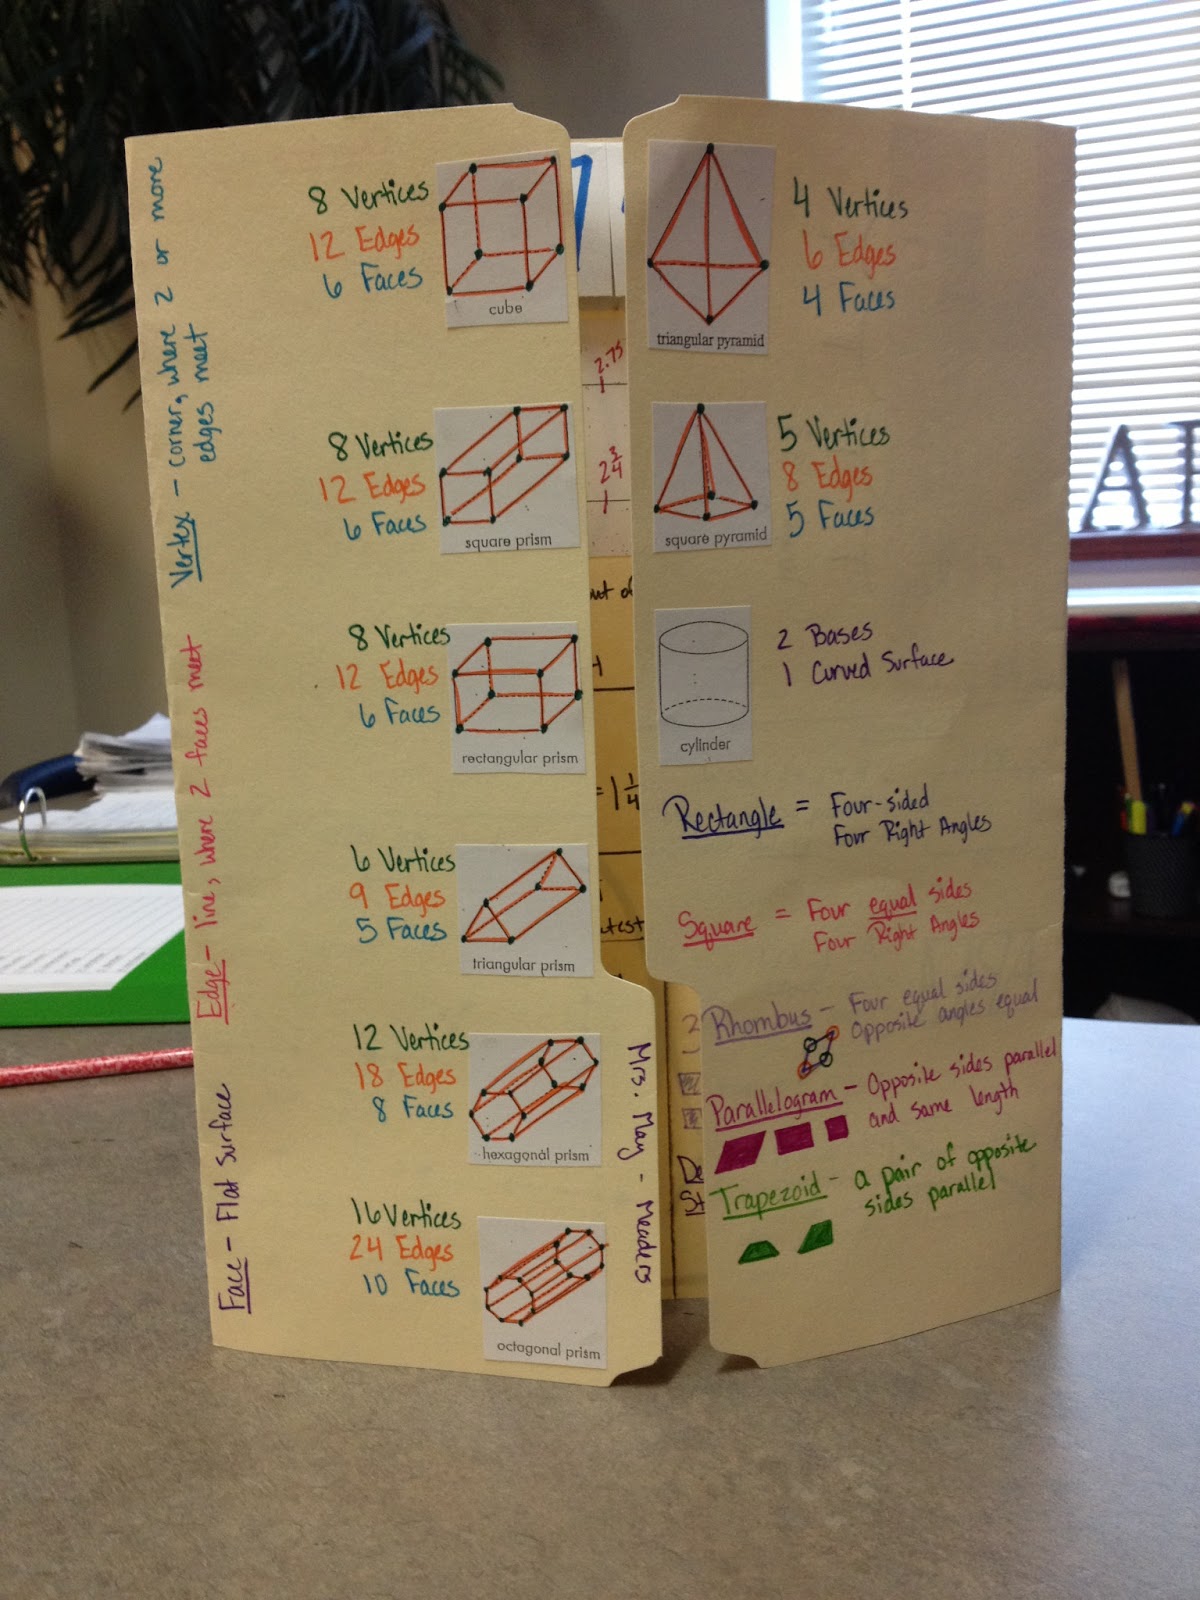 Vertex - corner, where 2 or more
edges meet
Edge - line, where 2 faces meet
Face - Flat Surface
8 Vertices
12 Edges
6 Faces
cube
8 Vertices
12 Edges
6 Faces
square prism
8 Vertices
12 Edges
6 Faces
rectangular prism
6 Vertices
9 Edges
5 Faces
triangular prism
12 Vertices
18 Edges
8 Faces
hexagonal prism
16 Vertices
24 Edges
10 Faces
octagonal prism
Mrs. May - Meaders
2.75
2 3/4
= 1 1/4
4 Vertices
6 Edges
4 Faces
triangular pyramid
5 Vertices
8 Edges
5 Faces
square pyramid
2 Bases
1 Curved Surface
cylinder
Rectangle = Four-sided
Four Right Angles
Square = Four equal sides
Four Right Angles
Rhombus - Four equal sides
Opposite angles equal
Parallelogram - Opposite sides parallel
and same length
Trapezoid - a pair of opposite
sides parallel